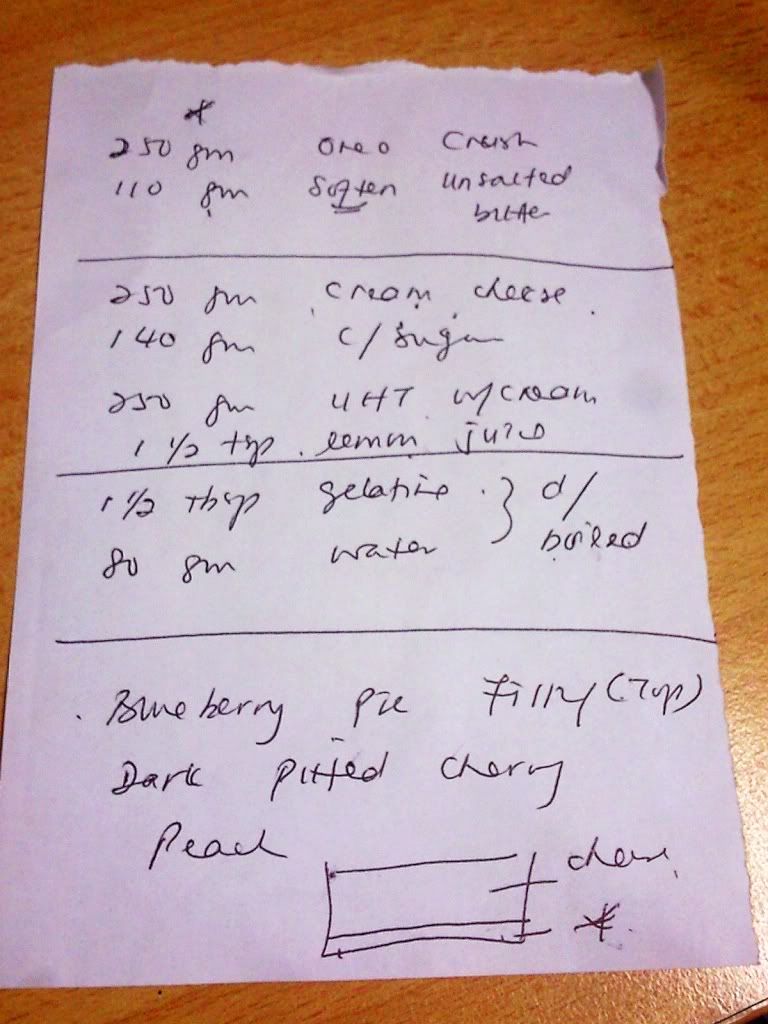 *
250 gm Oreo Crush
110 gm Soften unsalted
butter
250 gm cream cheese.
140 gm c/sugar
250 gm UHT w/cream
1 1/2 tsp. lemon juice
1 1/2 Tbsp gelatine } d/
80 gm water boiled
. Blueberry Pie Filling (Top)
Dark Pitted Cherry
Peach
cheese
*